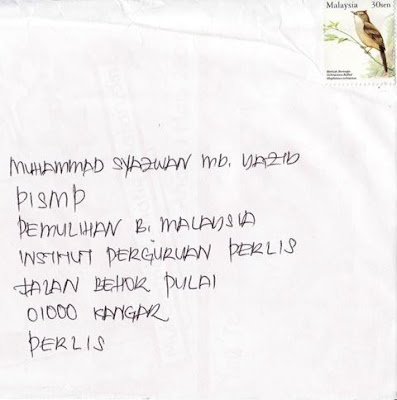 Malaysia 30sen
MUHAMMAD SYAZWAN MD. YAZID
PISMP
PEMULIHAN B. MALAYSIA
INSTITUT PERGURUAN PERLIS
JALAN BEHOR PULAI
01000 KANGAR
PERLIS